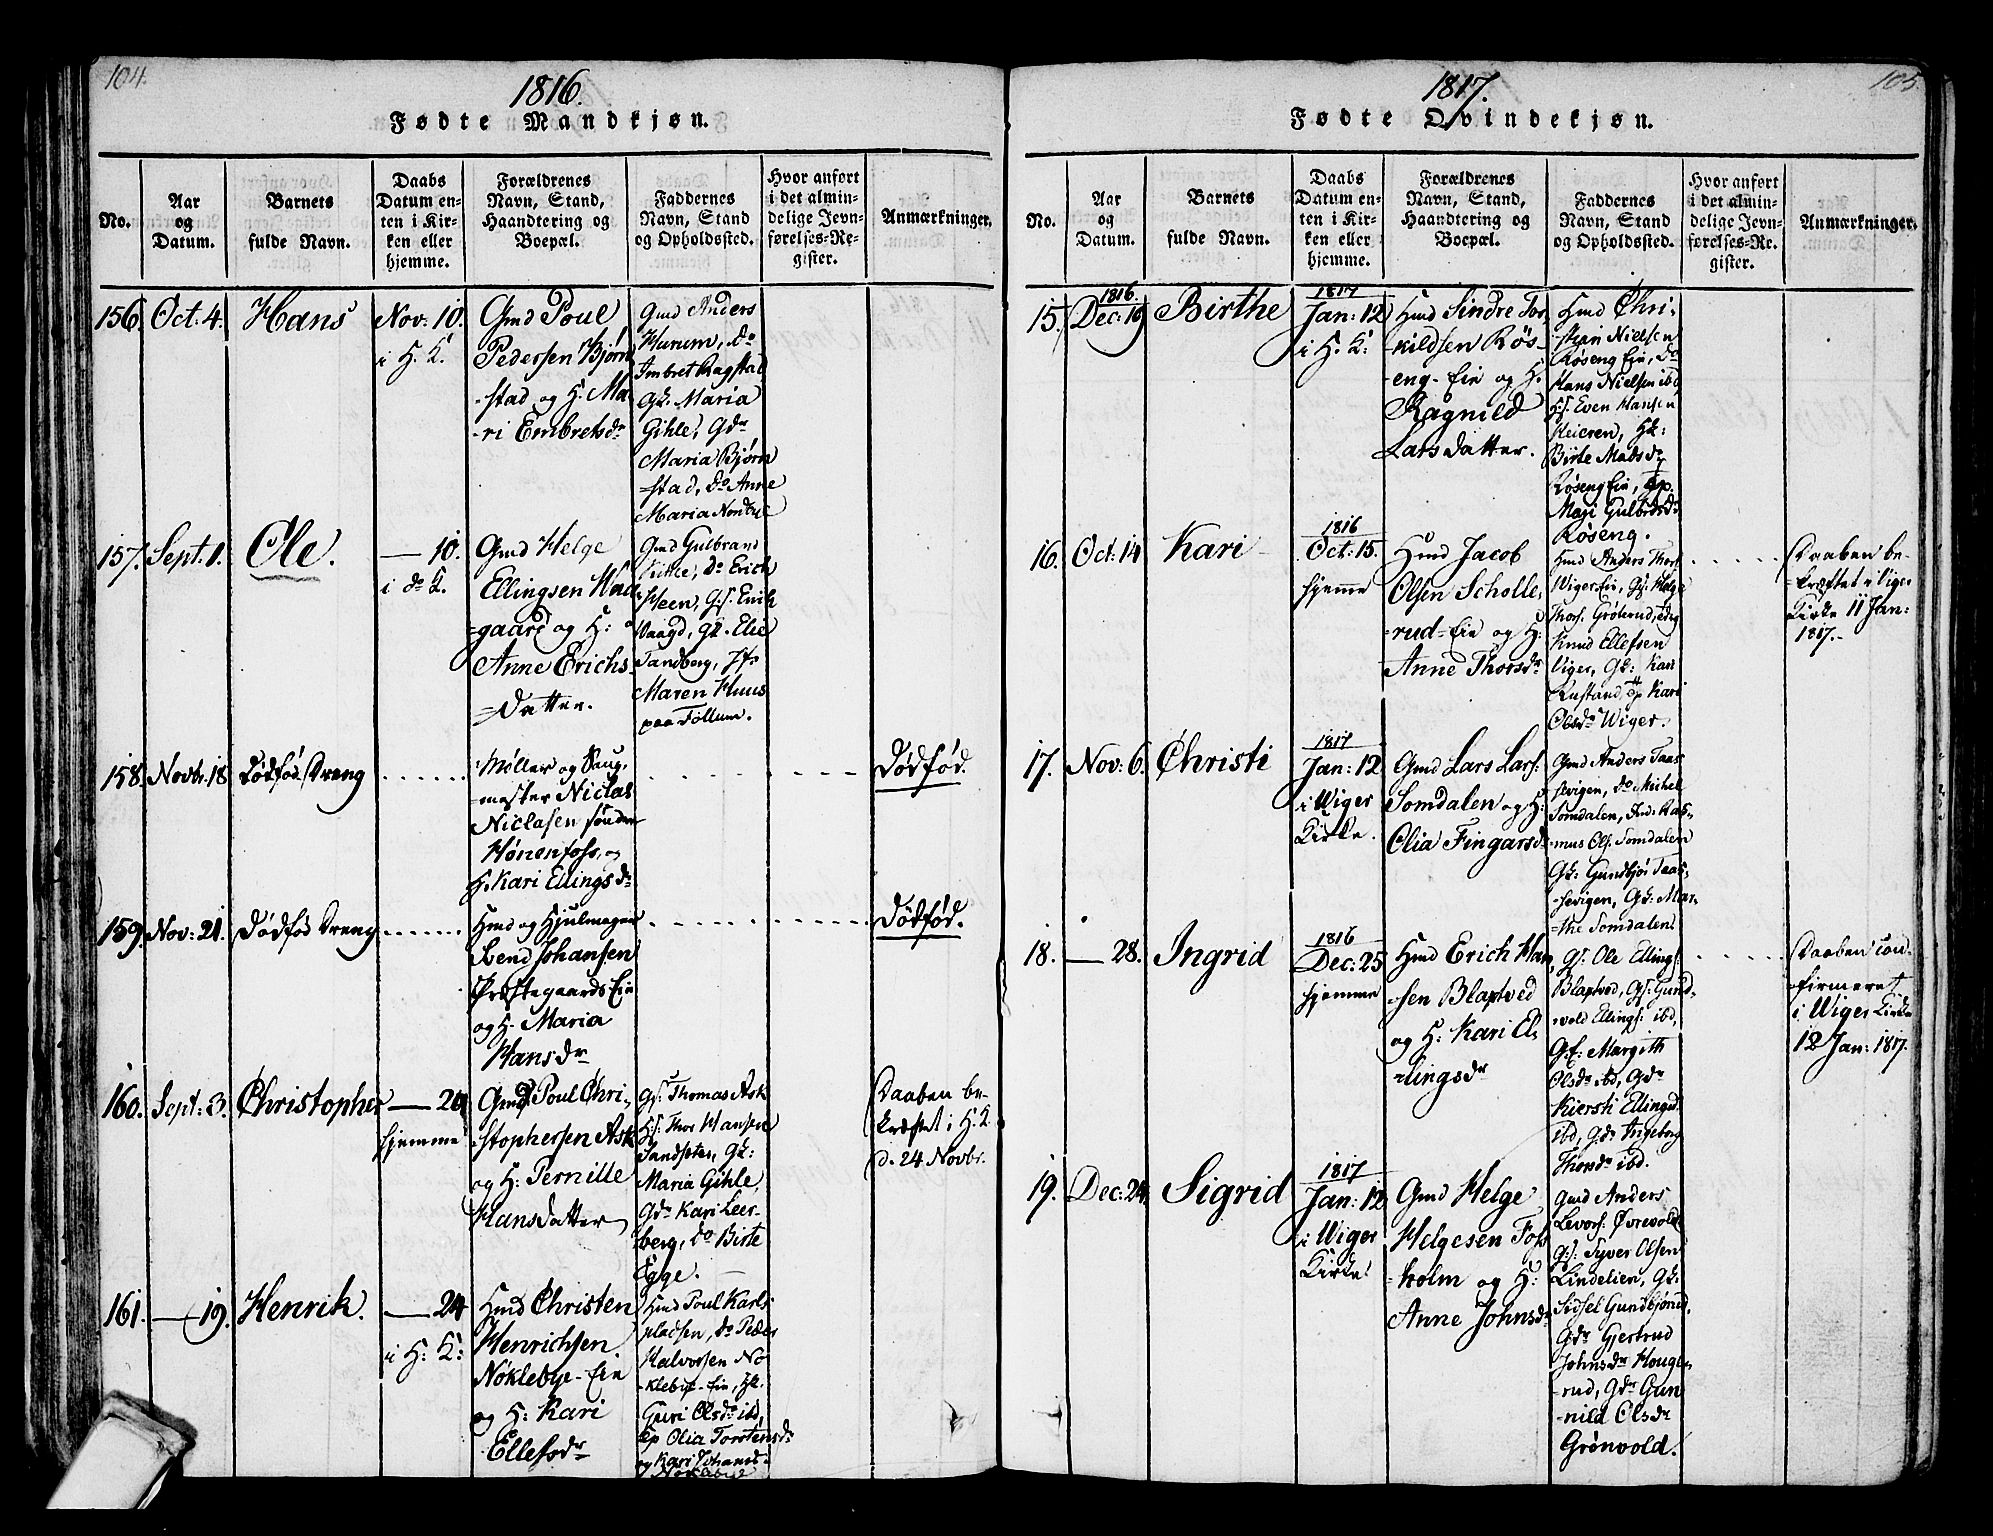 104.
1816.
Fødte Mandkjøn.
No.
Aar
og
Datum.
Barnets
fulde Navn.
Daabs
Datum en-
ten i Kir-
ken eller
hjemme.
Forældrenes
Navn, Stand,
Haandtering og
Boepæl.
Faddernes
Navn, Stand
og Opholdssted.
Hvor anført
i det almin-
delige Jevn-
førelses-Re-
gister.
Anmærkninger.
156. Oct: 4. Hans
Nov: 10.
i H. K.
Gmd Poul
Pedersen Bjørn
-stad og H. Ma
-ri Embretsdr
Gmd Anders
Hurum, do
Imbret Ragstad
Gk. Maria
Gihle, Gdr
Maria Bjørn
-stad, do Anne
Maria
157. Sept: 1. Ole.
— 10.
i do K.
Gmd Helge
Ellingsen
=gaard og H:
Anne Erichs
=datter.
Gmd Gulbrand
do Erich
Heen, G:s.
Gk. Elie
Tandberg,
Maren Huus
paa Follum.
158. Novbr. 18 Dødfød Dreng
Møller og Saug,
-mester Niclas
Niclasen sønden
Hønenfoss, og
H. Kari Ellingsdr
Dødfød.
159. Nov: 21. Dødfød Dreng
Hmd og Hjulmager
Svend Johansen
PræstegaardsEie
og H. Maria
Hansdr
Dødfød.
160. Sept: 3. Christopher
— 24
hjemme
Gmd Poul Chri-
stophersen Ask
og H: Pernille
Hansdatter
Gs. Thomas Ask
H:s. Thor Hansen
Sandseter, Gk:
Maria Gihle,
Gdr Kari Leer-
berg, do Birte
Egge.
Daaben be-
kræftet i H. K.
d. 24 Novbr.
161. — 19. Henrik.
— 24
i H: K:
Hmd Christen
Henrichsen
Nøklebye-Eie
og H: Kari
Ellefsdr
Hmd Poul Karls
pladsen, do Peder
Halvorsen Nø
-klebye-Eie, Hk.
Guri Olsdr ibd,
Ep Olia Torstensdr
og Kari Johansd
105
1817.
Fødte Qvindekjøn.
No.
Aar
og
Datum.
Barnets
fulde Navn.
Daabs
Datum en-
ten i Kir-
ken eller
hjemme.
Forældrenes
Navn, Stand,
Haandtering og
Boepæl.
Faddernes
Navn, Stand
og Opholdssted.
Hvor anført
i det almin-
delige Jevn-
førelses-Re-
gister.
Anmærkninger.
1816.
15. Dec: 19 Birthe
1817
Jan: 12
i H. K:
Hmd Sindre Tor,
-kildsen Røs-
-eng-Eie og H.
Ragnild
Larsdatter.
Hmd Chri-
stian Nielsen
Røseng Eie, do
Hans Nielsen ibd
H:s. Even Hansen
Heieren, Hk:
Birte Madsdr
Røseng Eie, Ep.
Magi Gulbrdsdr
Røseng.
16. Oct: 14 Kari
1816
Oct: 15.
hjemme
Hmd Jacob
Olsen Scholle,
-rud-Eie og H:
Anne Thorsdr
Hmd Anders Thors
WigerEie, Gs: Helge
Thors.
Knud Ellefsen
Viger, Gk: Kari
Rustand Ep Kari
Olsdr Wiger.
Daaben be-
-kræftet i Viger
Kirke 11 Jan:
1817.
17. Nov: 6. Christi
1817
Jan: 12
i Wiger
Kirke.
Gmd Lars Lars:
Somdalen og H:
Olia Fingarsdr
Gmd Anders Taas
-sevigen, do Michel
Somdalen, Ras
-mus Ols. Somdalen
Gk: Gunbjør Taas-
-sevigen, Gk: Mar-
the Somdalen
18. — 28. Ingrid
1816
Dec: 25
hjemme
Hmd Erich Han,
-sen Blaptved
og H: Kari El-
-lingsdr
Gs. Ole Ellings
Blaptved, Gs: Gund-
wold Ellings: ibd,
Gk: Margith
Olsdr ibd, Gdr
Kiersti Ellingsd
ibd, Gdr Ingeborg
Thorsdr ibd.
Daaben con-
-firmeret
i Wiger Kirke
12 Jan: 1817.
19. Dec: 24. Sigrid
1817
Jan: 12
i Wiger
Kirke.
Gmd Helge
Helgesen Foss
=holm og H:
Anne Johnsdr
Gmd Anders
Levors: Øvrevold
G:s: Syver Olsen
Lindelien, Gk:
Sidsel Gundbjørnsd,
Gdr Gjertrud
Johnsdr Houge-
-rud, Gdr Gun
-nild Olsdr
Grønvold.